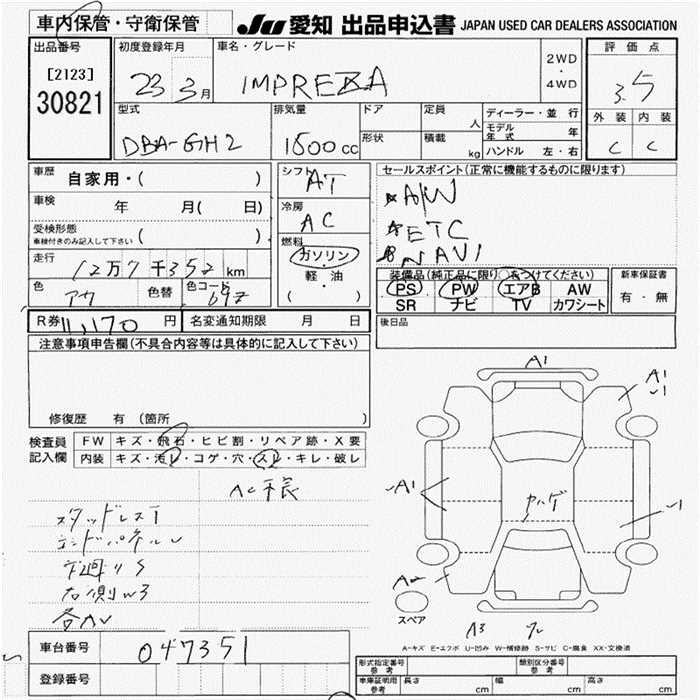 車内保管・守衛保管
JU 愛知 出品申込書 JAPAN USED CAR DEALERS ASSOCIATION
出品番号
[2123]
30821
初度登録年月
23 3月
車名・グレード
IMPREZA
2WD
・
4WD
評価点
3.5
外装 内装
C C
型式
DBA-GH2
排気量
1500cc
ドア
形状
定員
人
積載
kg
ディーラー・並行
モデル年式 年
ハンドル 左・右
車歴
自家用・( )
車検
年 月( 日)
受検形態
車検付きのみ記入して下さい ( )
走行
12万7千352km
色
アウ
色替
色コード
69Z
シフト
AT
冷房
AC
燃料
ガソリン
・
軽・油
( )
セールスポイント(正常に機能するものに限ります)
A/W
ETC
NAVI
装備品(純正品に限り○をつけてください)
PS PW エアB AW
SR ナビ TV カワシート
新車保証書
有・無
R券 11,170円
名変通知期限 月 日
後日品
注意事項申告欄(不具合内容等は具体的に記入して下さい)
修復歴 有 (箇所 )
検査員
記入欄
FW キズ・飛石・ヒビ割・リペア跡・X要
内装 キズ・汚レ・コゲ・穴・スレ・キレ・破レ
スタッドレスT
エンドパネルU
下廻りS
右側W3
各AU
A1
A1
A1
A2
A3
ヤハゲ
スペア
A-キズ E-エクボ U-凹み W-補修跡 S-サビ C-腐食 XX-交換済
車台番号
047351
登録番号
形式指定番号
参考
類別区分番号
参考
車庫証明用
参考
長さ cm
幅 cm
高さ cm